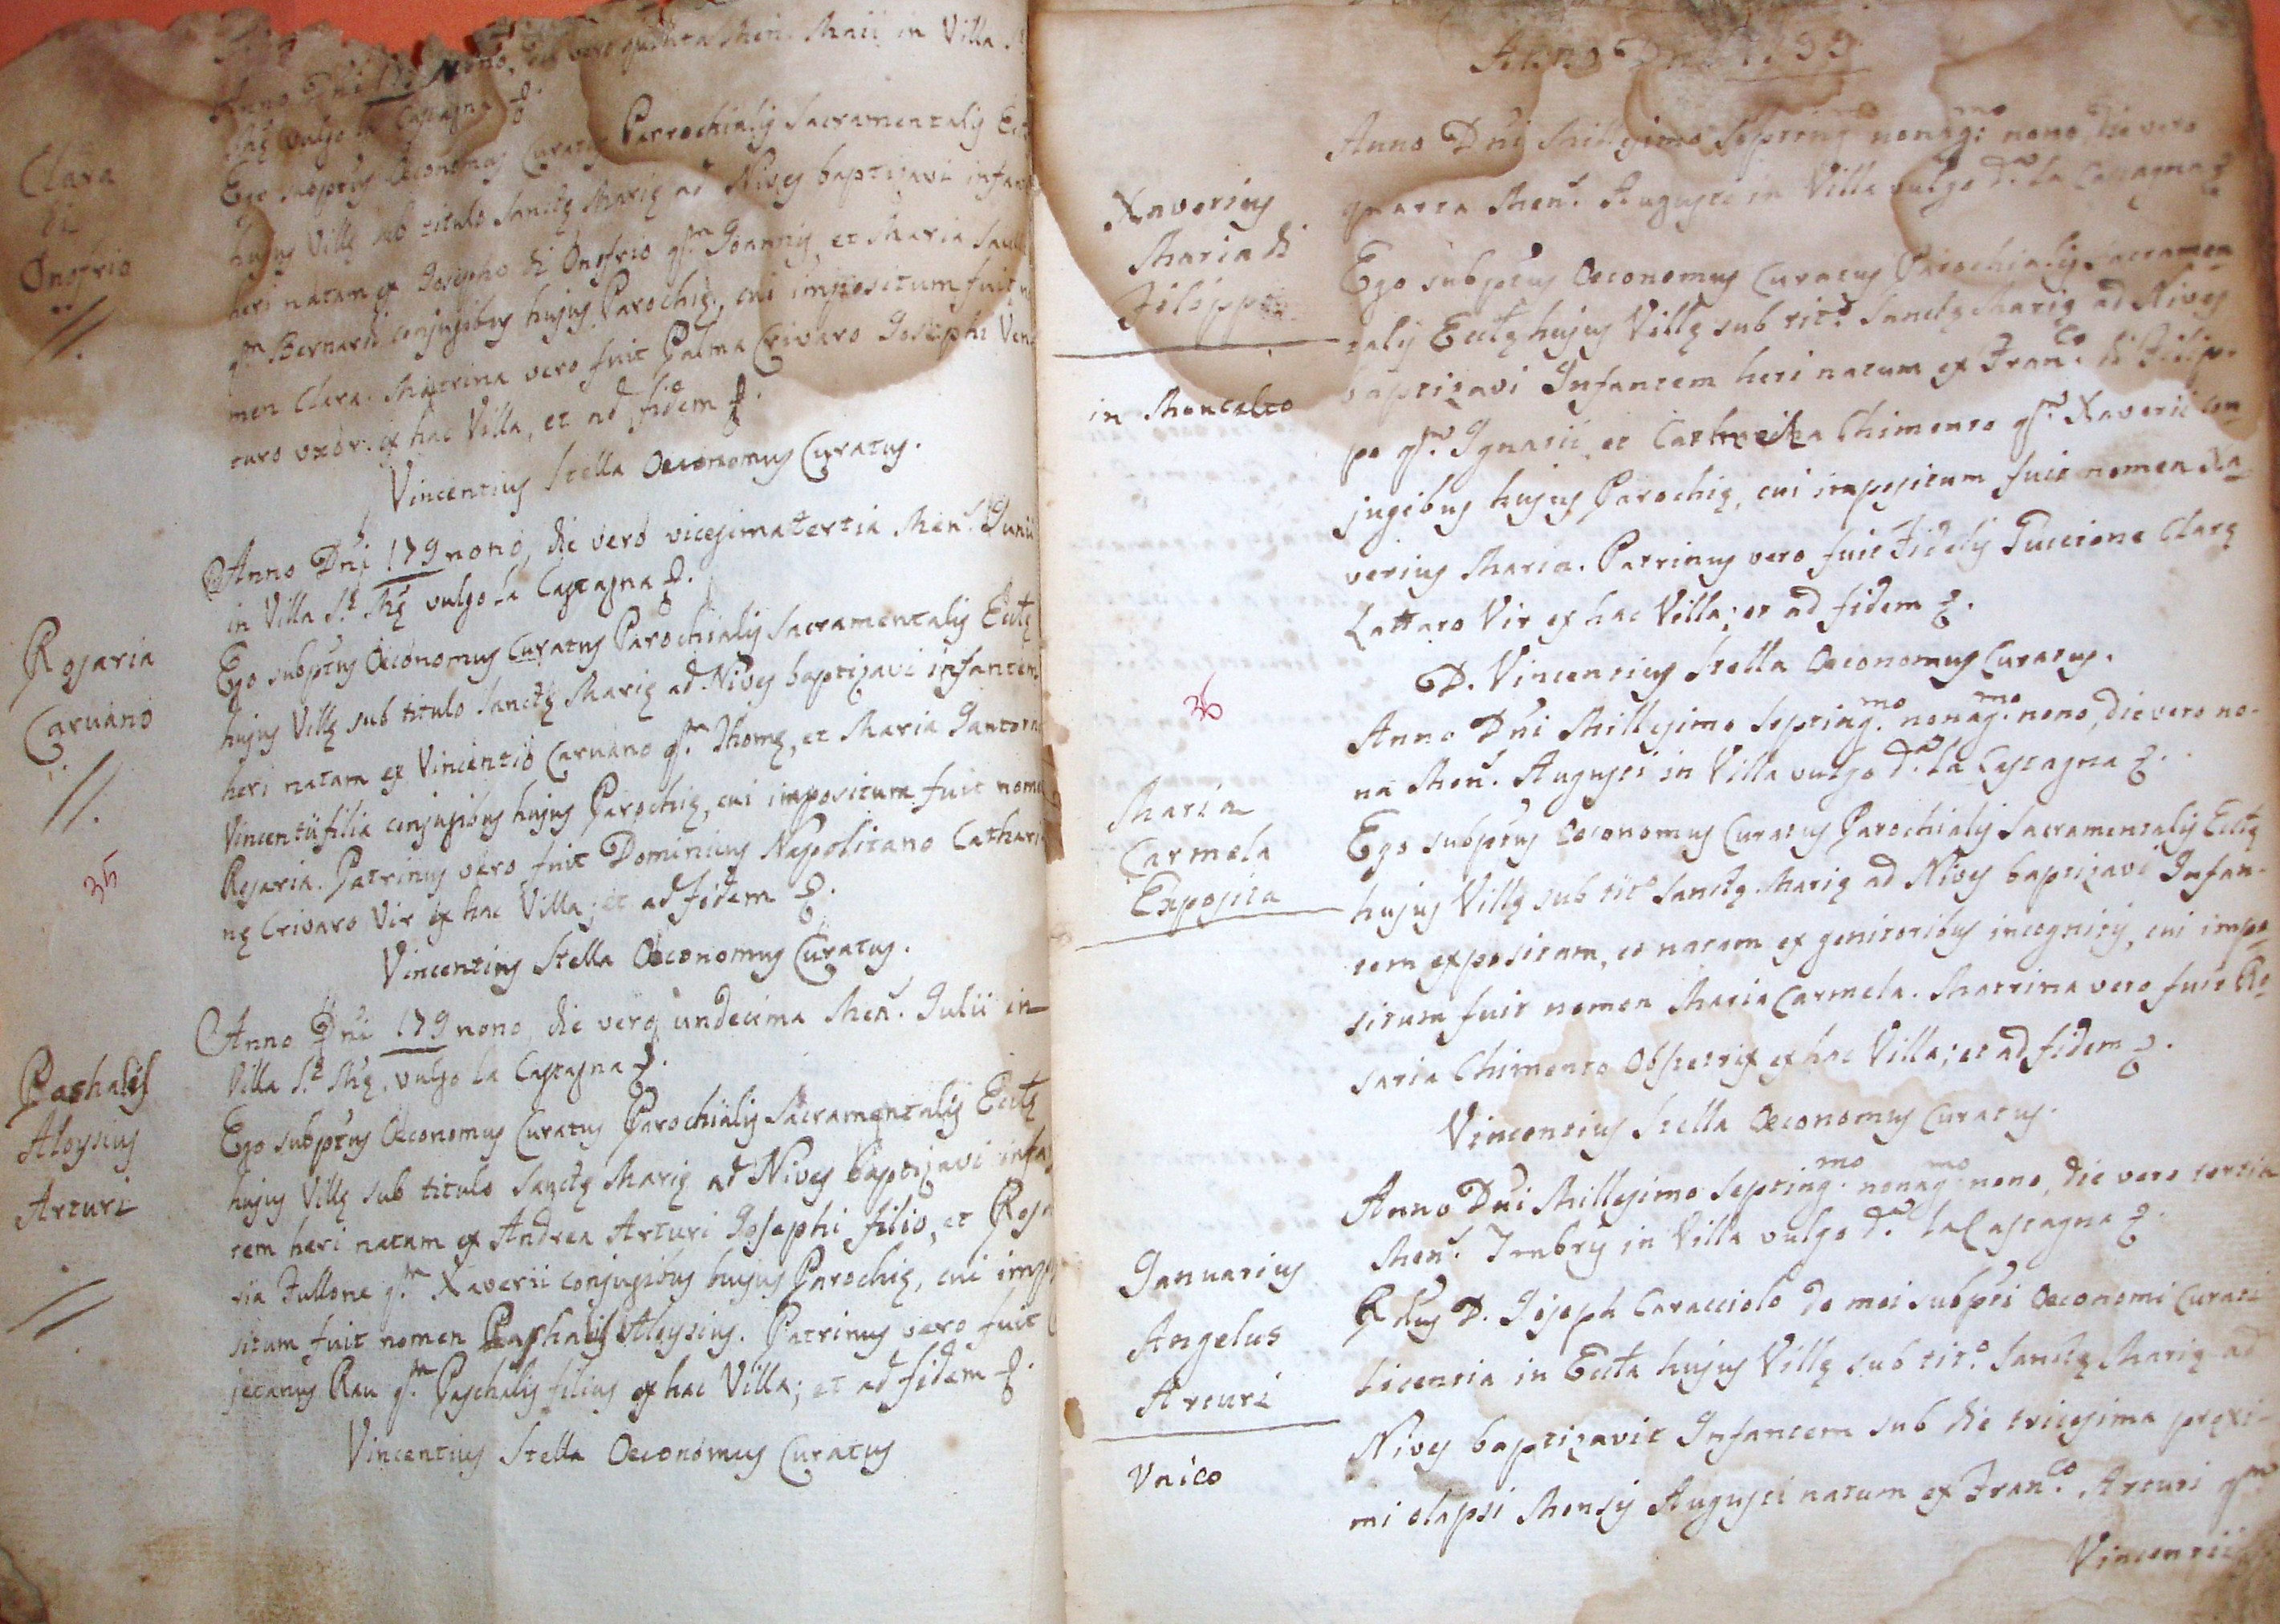 Anno Dni 179 nono, die vero quinta Men. Maii in Villa
Mę vulgo la Castagna
Clara
di
Onofrio
Ego subptus Oeconomus Curatus Parrochialis Sacramentalis
hujus Villę sub titulo Sanctę Marię ad Nives baptizavi infan
heri natam ex Josepho di Onofrio qm Joannis, et Maria
qm Bernardi conjugibus hujus Parochię, cui impositum fuit no
men Clara. Matrina vero fuit Palma Crivaro Josephi Ven
turo uxor. ex hac Villa, et ad fidem
Vincentius Stella Oeconomus Curatus.
Anno Dni 179 nono, die vero vicesima tertia Men. Junii
in Villa S. Mę vulgo la Castagna
Rosaria
Caruano
Ego subptus Oeconomus Curatus Parochialis Sacramentalis Ecctę
hujus Villę sub titulo Sanctę Marię ad Nives baptizavi infantem
heri natam ex Vincentio Caruano qm Thomę, et Maria
Vincentii filia conjugibus hujus Parochię, cui impositum fuit nome
Rosaria. Patrinus vero fuit Dominicus Napolitano Cathari
nę Crivaro Vir ex hac Villa; et ad fidem
35
Vincentius Stella Oeconomus Curatus.
Anno Dni 179 nono, die vero undecima Men. Julii in
Villa S. Mę. vulgo la Castagna
Paschalis
Aloysius
Arturi
Ego subptus Oeconomus Curatus Parochialis Sacramentalis Ecctę
hujus Villę sub titulo Sanctę Marię ad Nives baptizavi infan
tem heri natum ex Andrea Arturi Josephi filio, et Rosa
ria Fullone qm Xaverii conjugibus hujus Parochię, cui impo
situm fuit nomen Paschalis Aloysius. Patrinus vero fuit
jetanus Rau qm Paschalis filius ex hac Villa; et ad fidem
Vincentius Stella Oeconomus Curatus
Anno Dni 1799
Anno Dni Millesimo Septingmo nonagmo: nono, die vero
quarta Men. Augusti in Villa vulgo da. la Castagna
Xaverius
Maria di
Filippo
in Moncalto
Ego subptus Oeconomus Curatus Parochialis Sacramen
talis Ecctę hujus Villę sub tito. Sanctę Marię ad Nives
baptizavi Infantem heri natum ex Franco. di Filip-
po qm. Ignatii, et Catharina Chimento qm. Xaverii con
jugibus hujus Parochię, cui impositum fuit nomen Xa
verius Maria. Patrinus vero fuit Fidelis Puccione Clarę
Lattaro Vir ex hac Villa; et ad fidem
D. Vincentius Stella Oeconomus Curatus.
36
Anno Dni Millesimo Septingmo. nonagmo. nono, die vero no-
na Men. Augusti in Villa vulgo da. la Castagna
Maria
Carmela
Exposita
Ego subptus Oeconomus Curatus Parochialis Sacramentalis Ecctę
hujus Villę sub tito Sanctę Marię ad Nives baptizavi Infan-
tem expositam, et natam ex genitoribus incognitis, cui impo
situm fuit nomen Maria Carmela. Matrina vero fuit Ro
saria Chimento Obstetrix ex hac Villa; et ad fidem
Vincentius Stella Oeconomus Curatus.
Anno Dni Millesimo Septingmo. nonagmo nono, die vero tertia
Men. 7mbris in Villa vulgo da. la Castagna
Januarius
Angelus
Arturi
Unico
Rdus D. Joseph Caracciolo de mei subpti Oeconomi Curati
licentia in Eccta hujus Villę sub tito. Sanctę Marię ad
Nives baptizavit Infantem sub die tricesima proxi-
mi elapsi Mensis Augusti natum ex Franco. Arturi qm
Vincentii